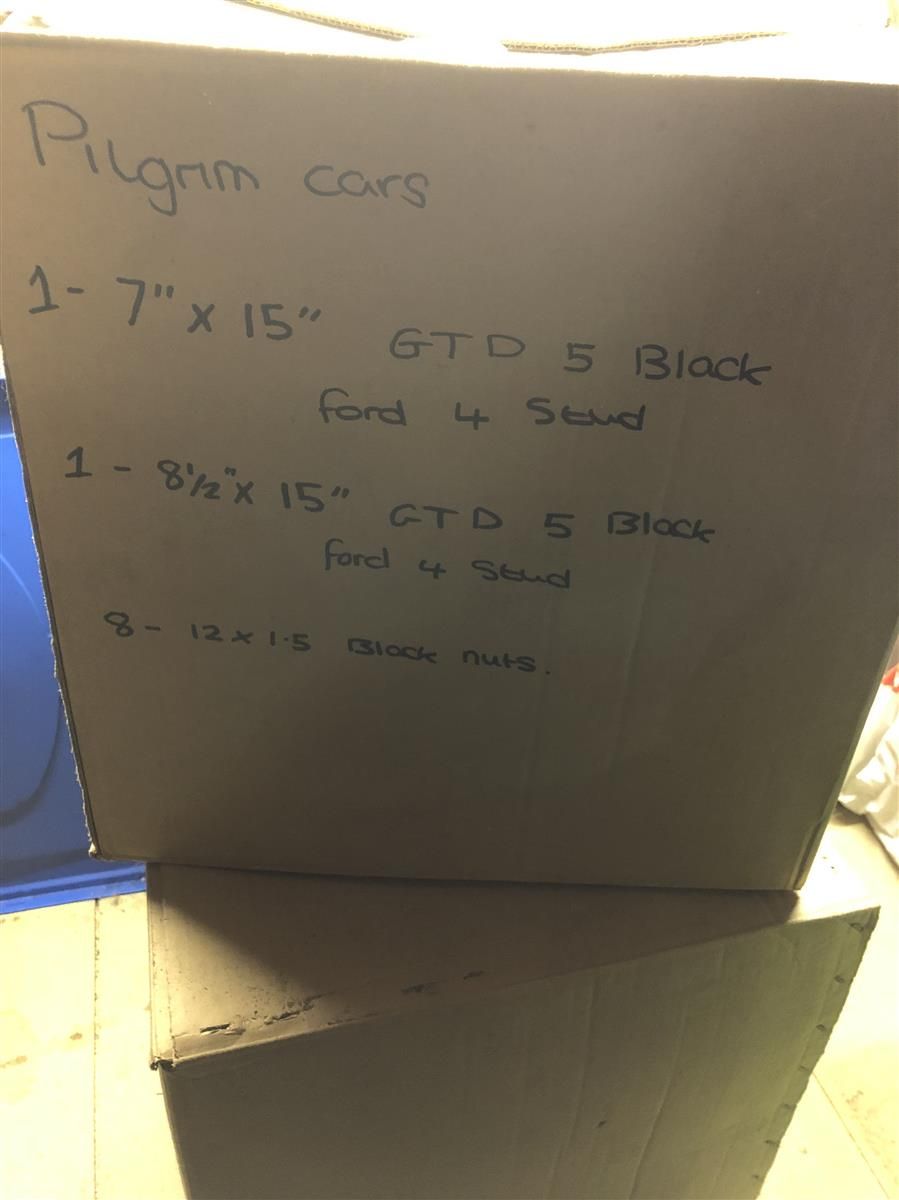 Pilgrim cars
1- 7" x 15" GTD 5 Black
ford 4 Stud
1 - 8 1/2" x 15" GTD 5 Black
ford 4 Stud
8 - 12 x 1.5 Black nuts.